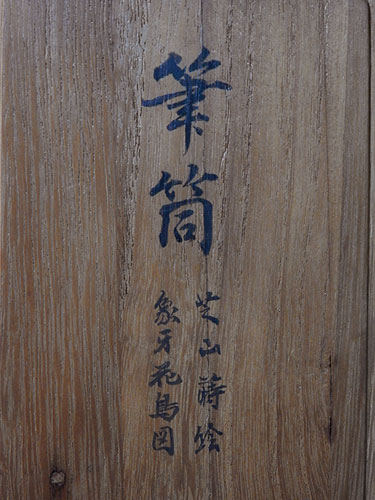 筆筒
芝山蒔絵
象牙花鳥図